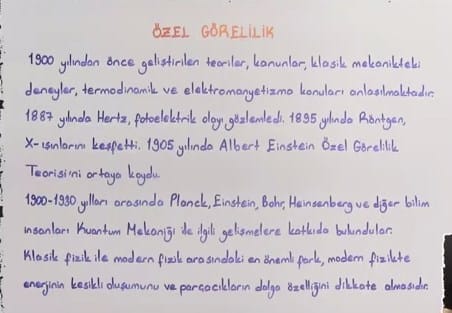 ÖZEL GÖRELİLİK
1900 yılından önce geliştirilen teoriler, kanunlar, klasik mekanikteki
deneyler, termodinamik ve elektromanyetizma konuları anlaşılmaktadır.
1887 yılında Hertz, fotoelektrik olayı gözlemledi. 1895 yılında Röntgen,
X-ışınlarını keşfetti. 1905 yılında Albert Einstein Özel Görelilik
Teorisi'ni ortaya koydu.
1900-1930 yılları arasında Planck, Einstein, Bohr, Heinsenberg ve diğer bilim
insanları Kuantum Mekaniği ile ilgili gelişmelere katkıda bulundular.
Klasik fizik ile modern fizik arasındaki en önemli fark, modern fizikte
enerjinin kesikli oluşumunu ve parçacıkların dalga özelliğini dikkate almasıdır.